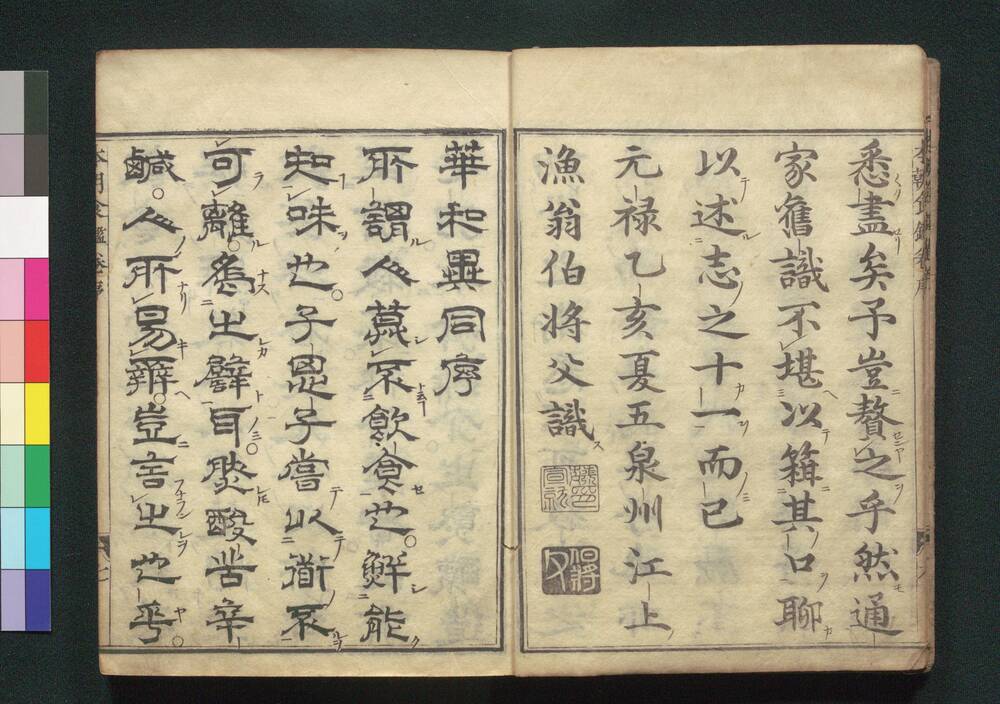 悉盡矣予豈贅之乎然通
家舊識不堪以箝其口聊
以述志之十一而已
元禄乙亥夏五泉州江上
漁翁伯将父識
華和異同序
所謂人莫不飲食也。鮮能
知味也。子思子嘗以道不
可離。為之譬耳。然酸苦辛
鹹。人所易辨。豈言之也乎。